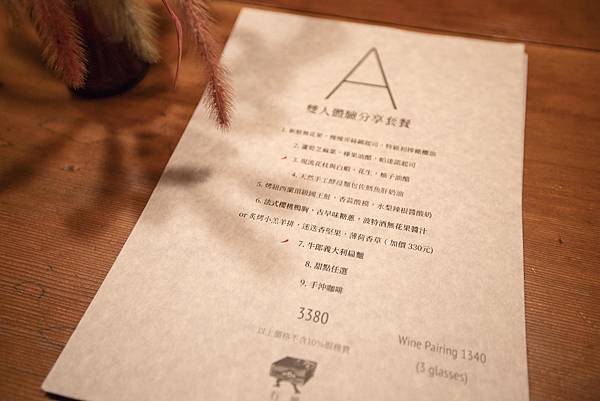 A
雙人體驗分享套餐
1. 新鮮無花果，慢慢弄絲綢起司，特級初榨橄欖油
2. 蘆筍芝麻葉，榛果油醋，帕達諾起司
3. 現流花枝與白蝦，花生，柚子油醋
4. 天然手工酵母麵包佐鯷魚肝奶油
5. 烤紐西蘭頂級國王鮭，香蒜酸模，水梨辣根醬酸奶
6. 法式櫻桃鴨胸，古早味糖蔥，波特酒無花果醬汁
or 炙烤小羔羊排，迷迭香堅果，薄荷香草（加價 330元)
7. 牛郎義大利扁麵
8. 甜點任選
9. 手沖咖啡
3380
以上價格不含10%服務費
Wine Pairing 1340
(3 glasses)